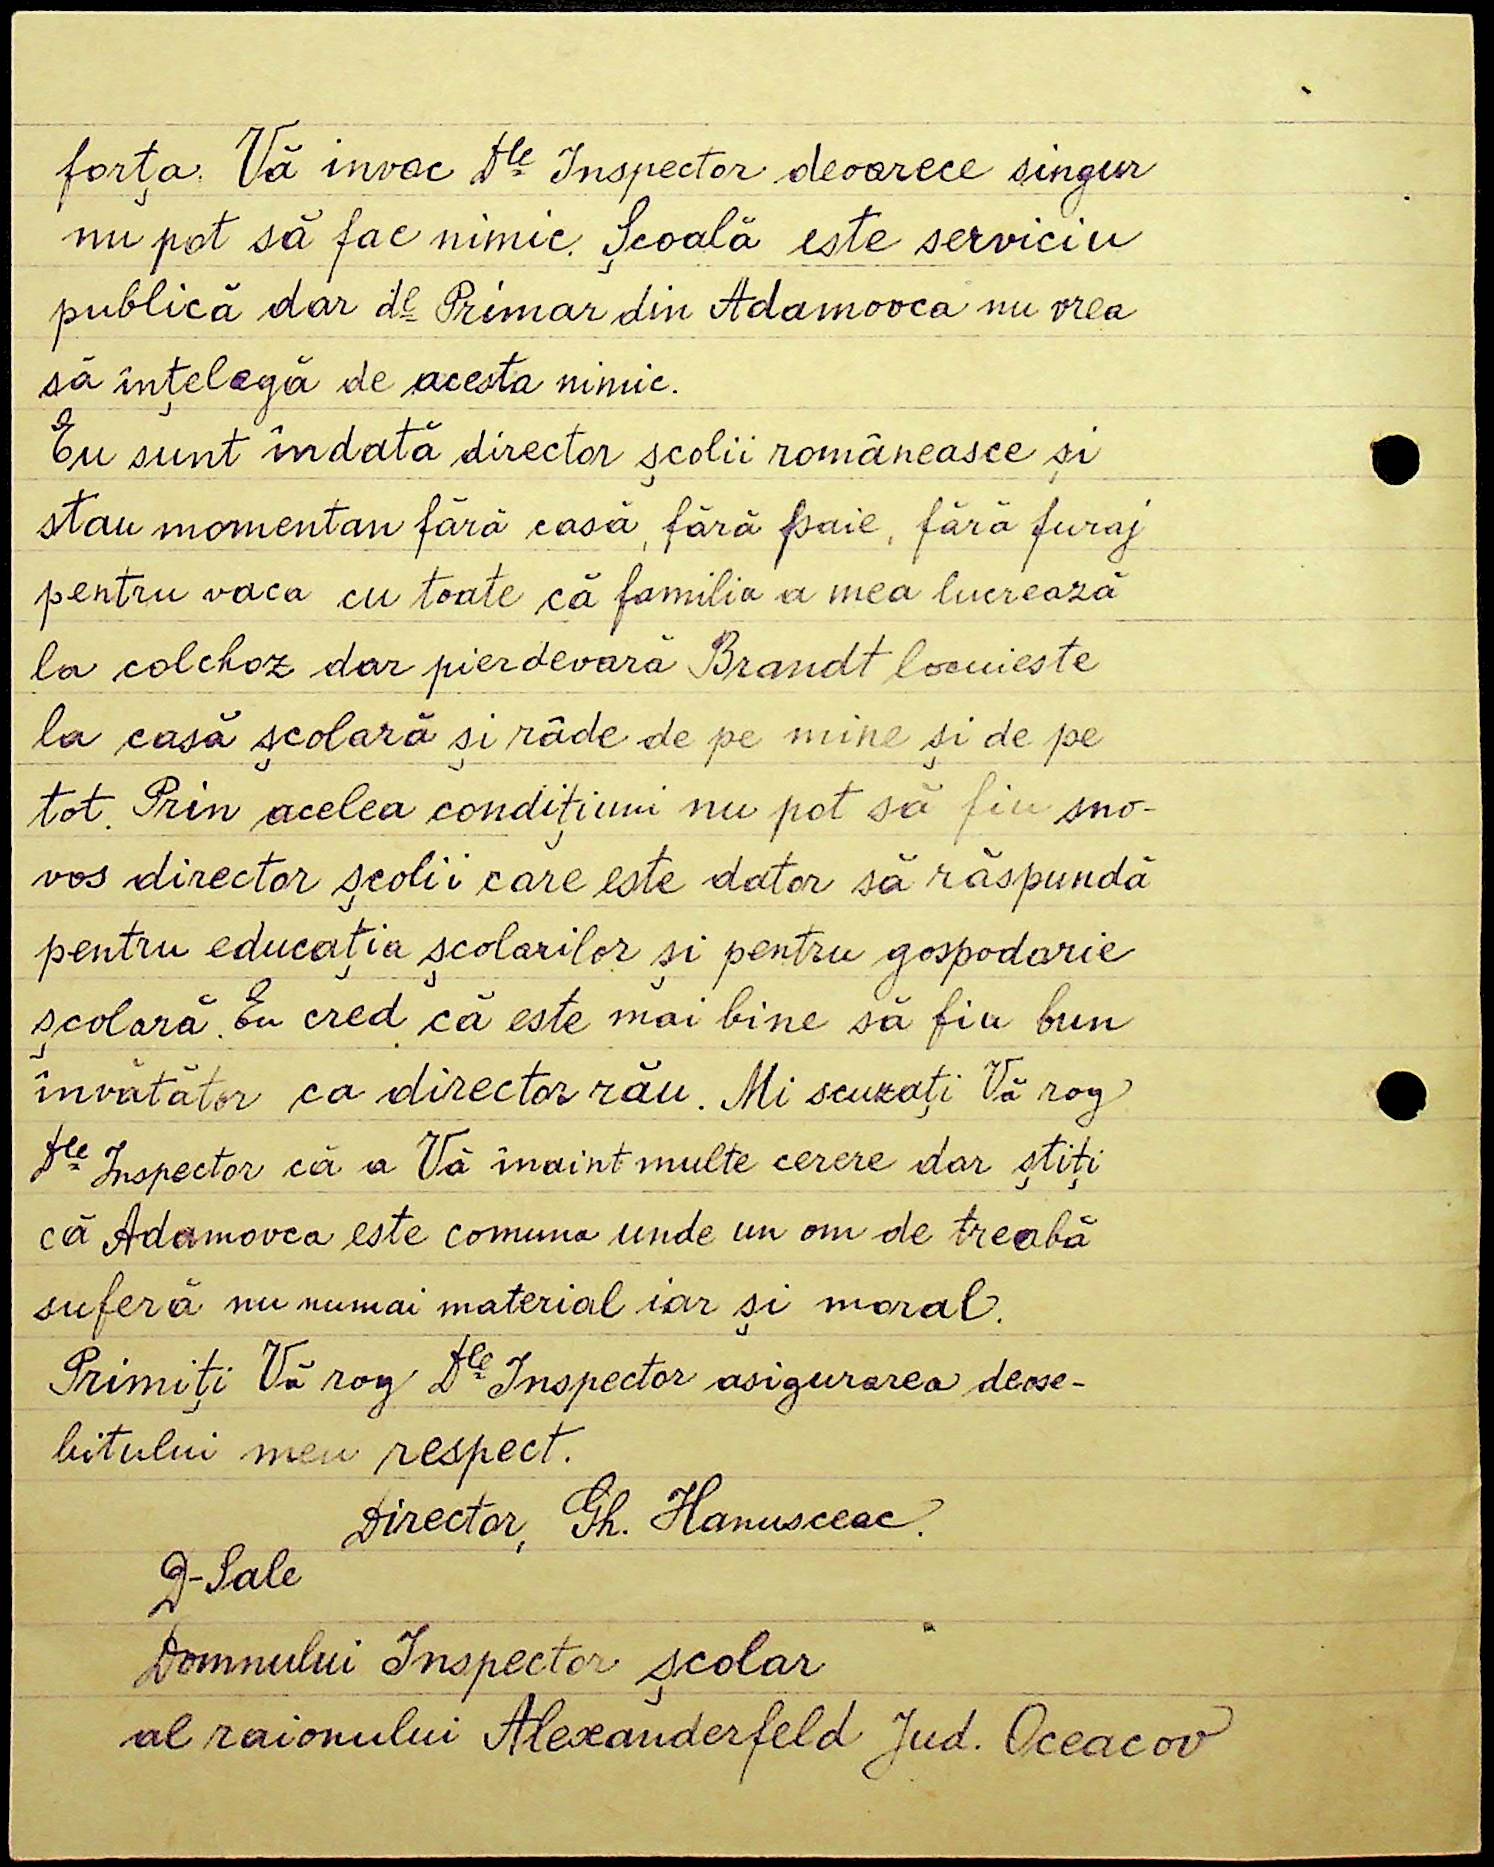 forța. Vă invoc Dle Inspector deoarece singur
nu pot să fac nimic. Școală este serviciu
publică dar dl Primar din Adamovca nu vrea
să înțelegă de acesta nimic.
Eu sunt îndată director școlii româneasce și
stau momentan fără casă, fără paie, fără furaj
pentru vaca cu toate că familia a mea lucrează
la colchoz dar pierdevară Brandt locuieste
la casă școlară și râde de pe mine și de pe
tot. Prin acelea condițiuni nu pot să fiu sno-
vos director școlii care este dator să răspundă
pentru educația școlarilor și pentru gospodarie
școlară. Eu cred că este mai bine să fiu bun
învătător ca director rău. Mi scuzați Vă rog
Dle Inspector că a Vă înaint multe cerere dar știți
că Adamovca este comuna unde un om de treabă
suferă nu numai material iar și moral.
Primiți Vă rog Dle Inspector asigurarea deose-
bitului meu respect.
Director, Gh. Hanusceac.
D-Sale
Domnului Inspector școlar
al raionului Alexanderfeld Jud. Oceacov